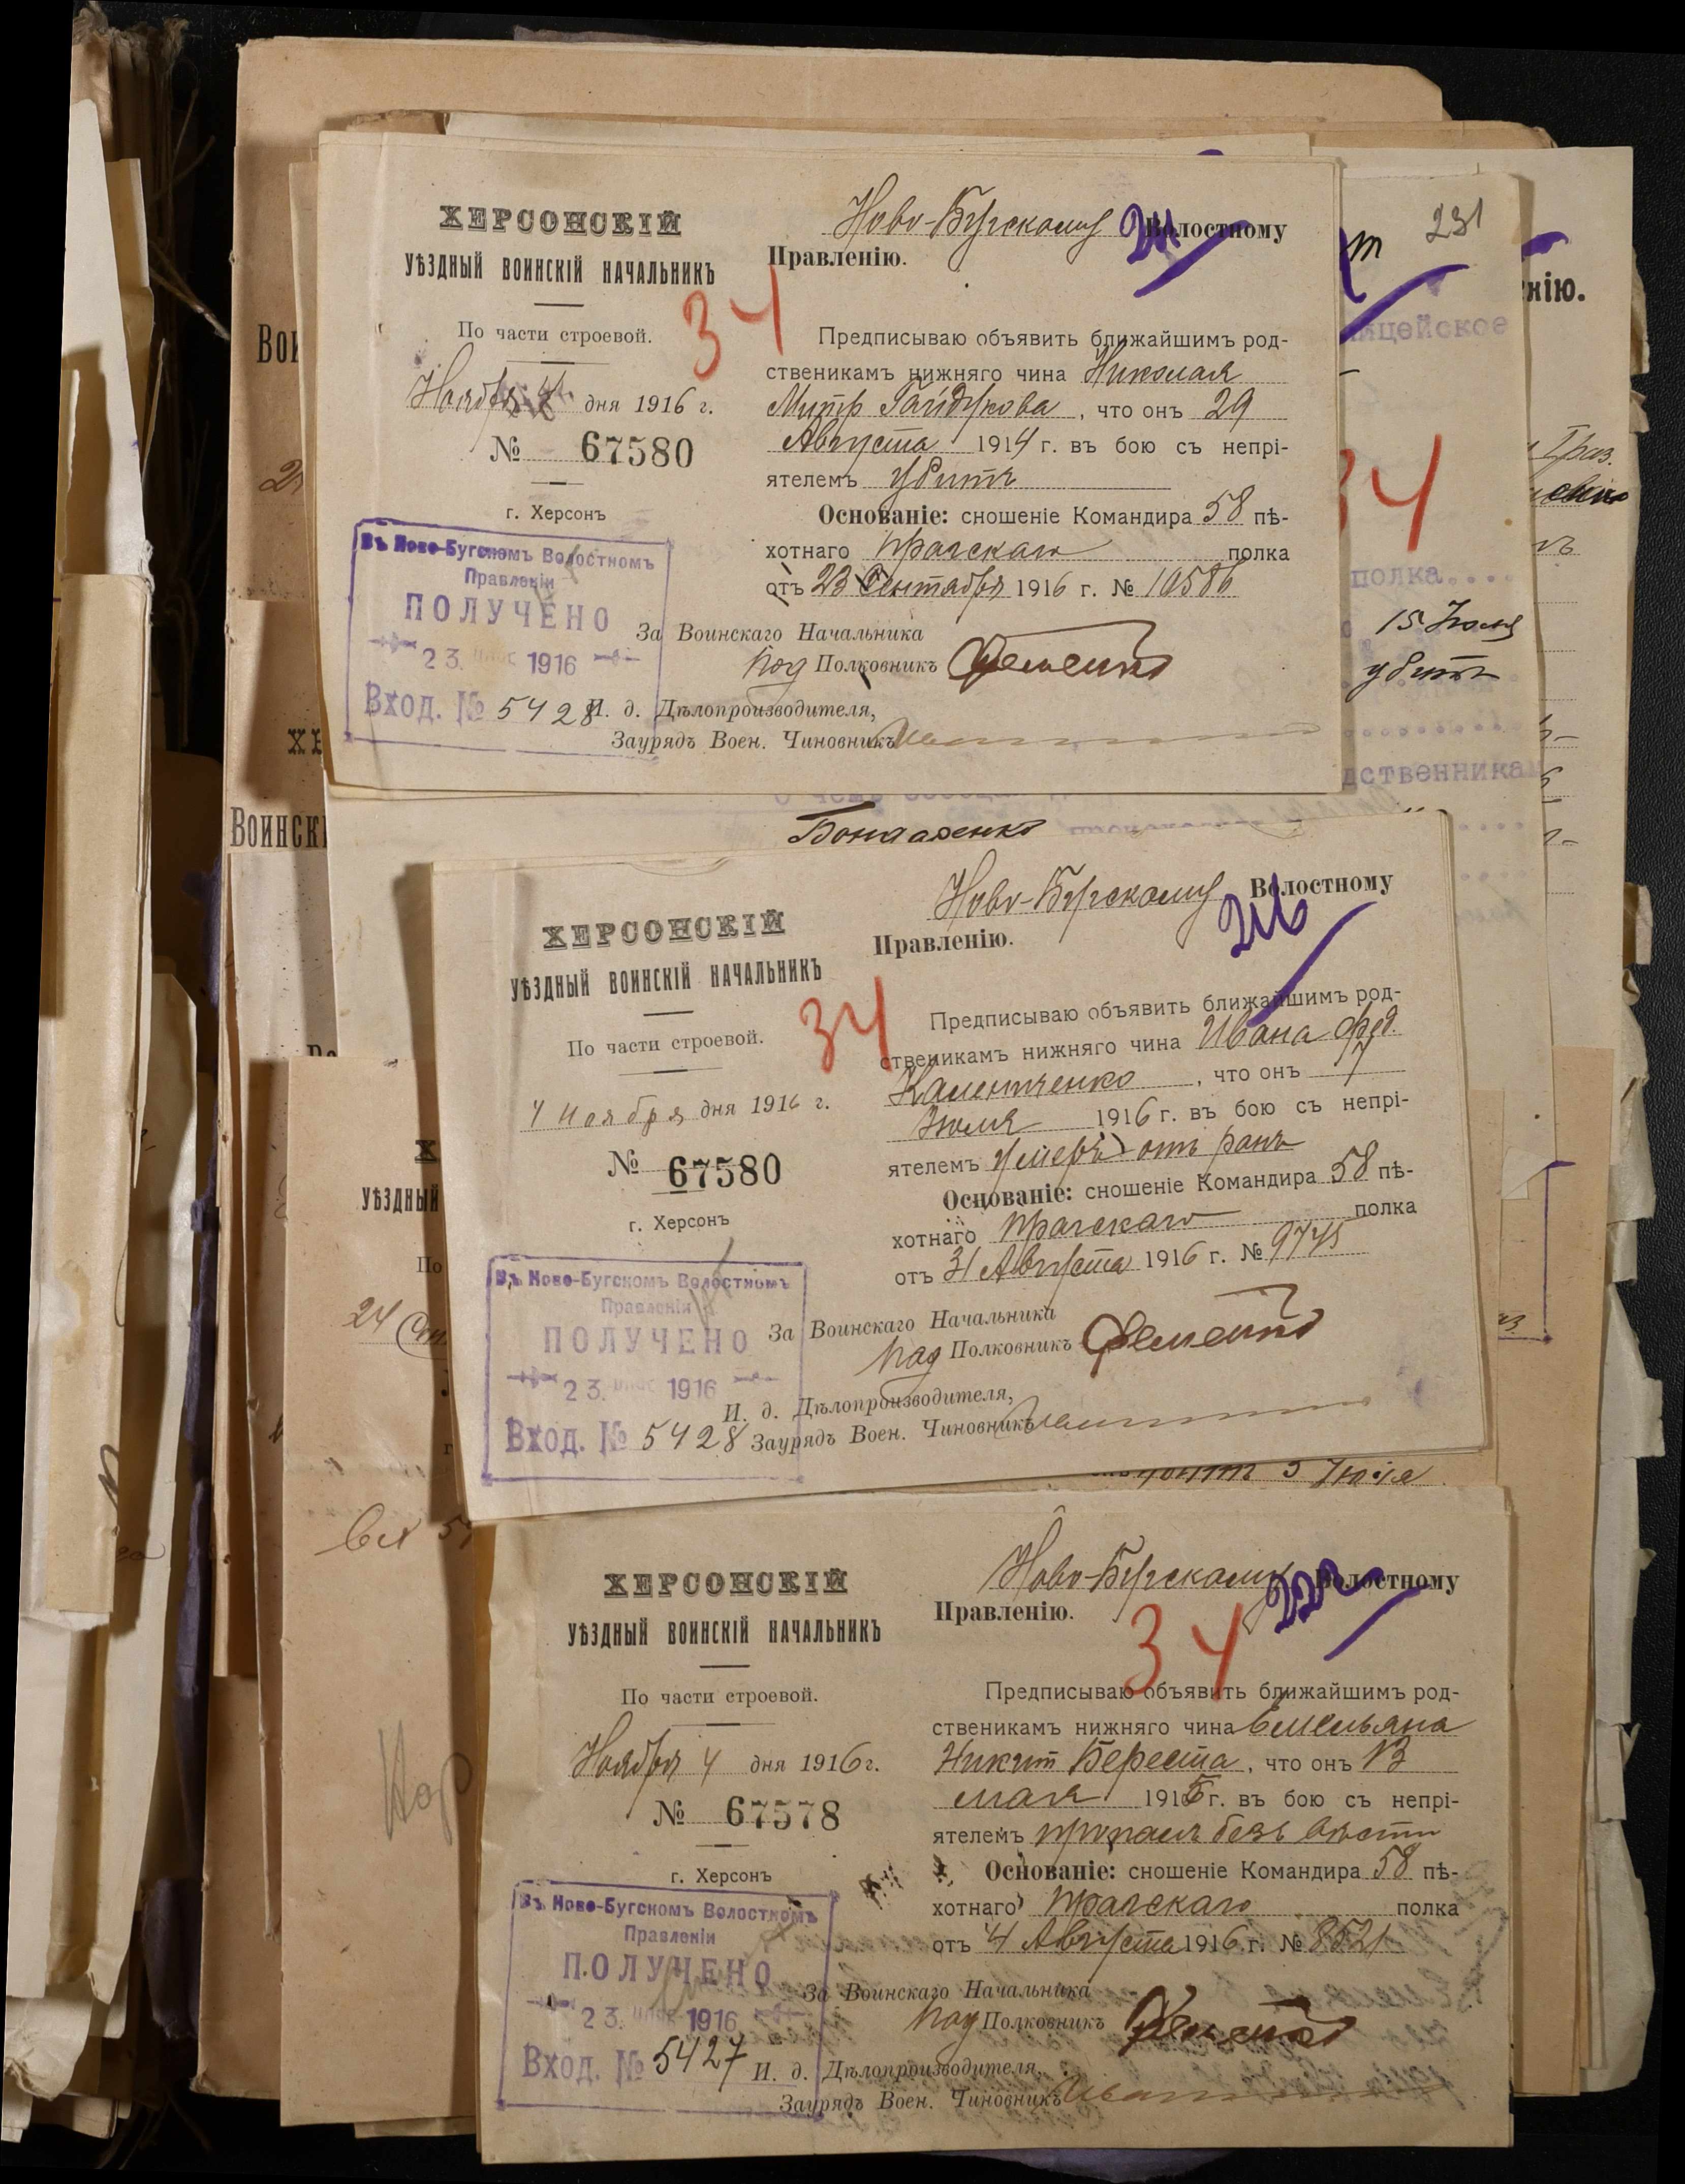 ХЕРСОНСКІЙ
УѢЗДНЫЙ ВОИНСКІЙ НАЧАЛЬНИКЪ
По части строевой.
Ноября 4 дня 1916 г.
№ 67580
г. Херсонъ
Въ Ново-Бугскомъ Волостномъ
Правленіи
ПОЛУЧЕНО
23. 1916
Вход. № 5428
Ново-Бугскому Волостному
Правленію.
34
Предписываю объявить ближайшимъ род-
ственикамъ нижняго чина Николая
Митр Гайдукова, что онъ 29
Августа 1914 г. въ бою съ непрі-
ятелемъ убитъ
Основаніе: сношеніе Командира 58 пѣ-
хотнаго Прагскаго полка
отъ 23 Сентября 1916 г. № 10586
За Воинскаго Начальника
Под Полковникъ
И. д. Дѣлопроизводителя,
Заурядъ Воен. Чиновникъ
231
нію.
34
полка
15 Июля
убитъ
дственникам
Бондаренко
ХЕРСОНСКІЙ
УѢЗДНЫЙ ВОИНСКІЙ НАЧАЛЬНИКЪ
По части строевой.
4 ноября дня 1916 г.
№ 67580
г. Херсонъ
Въ Ново-Бугскомъ Волостномъ
Правленіи
ПОЛУЧЕНО
23. 1916
Вход. № 5428
Ново-Бугскому Волостному
Правленію.
216
34
Предписываю объявить ближайшимъ род-
ственикамъ нижняго чина Ивана Фед.
Калентченко, что онъ 7
Июля 1916 г. въ бою съ непрі-
ятелемъ умеръ отъ ранъ
Основаніе: сношеніе Командира 58 пѣ-
хотнаго Прагскаго полка
отъ 31 Августа 1916 г. № 9745
За Воинскаго Начальника
Под Полковникъ
И. д. Дѣлопроизводителя,
Заурядъ Воен. Чиновникъ
ХЕРСОНСКІЙ
УѢЗДНЫЙ ВОИНСКІЙ НАЧАЛЬНИКЪ
По части строевой.
Ноября 4 дня 1916 г.
№ 67578
г. Херсонъ
Въ Ново-Бугскомъ Волостномъ
Правленіи
ПОЛУЧЕНО
23. 1916
Вход. № 5427
Ново-Бугскому Волостному
Правленію.
34
Предписываю объявить ближайшимъ род-
ственикамъ нижняго чина Емельяна
Никит Береста, что онъ 13
мая 1915 г. въ бою съ непрі-
ятелемъ пропалъ безъ вѣсти
Основаніе: сношеніе Командира 58 пѣ-
хотнаго Прагскаго полка
отъ 4 Августа 1916 г. № 8521
За Воинскаго Начальника
Под Полковникъ
И. д. Дѣлопроизводителя,
Заурядъ Воен. Чиновникъ